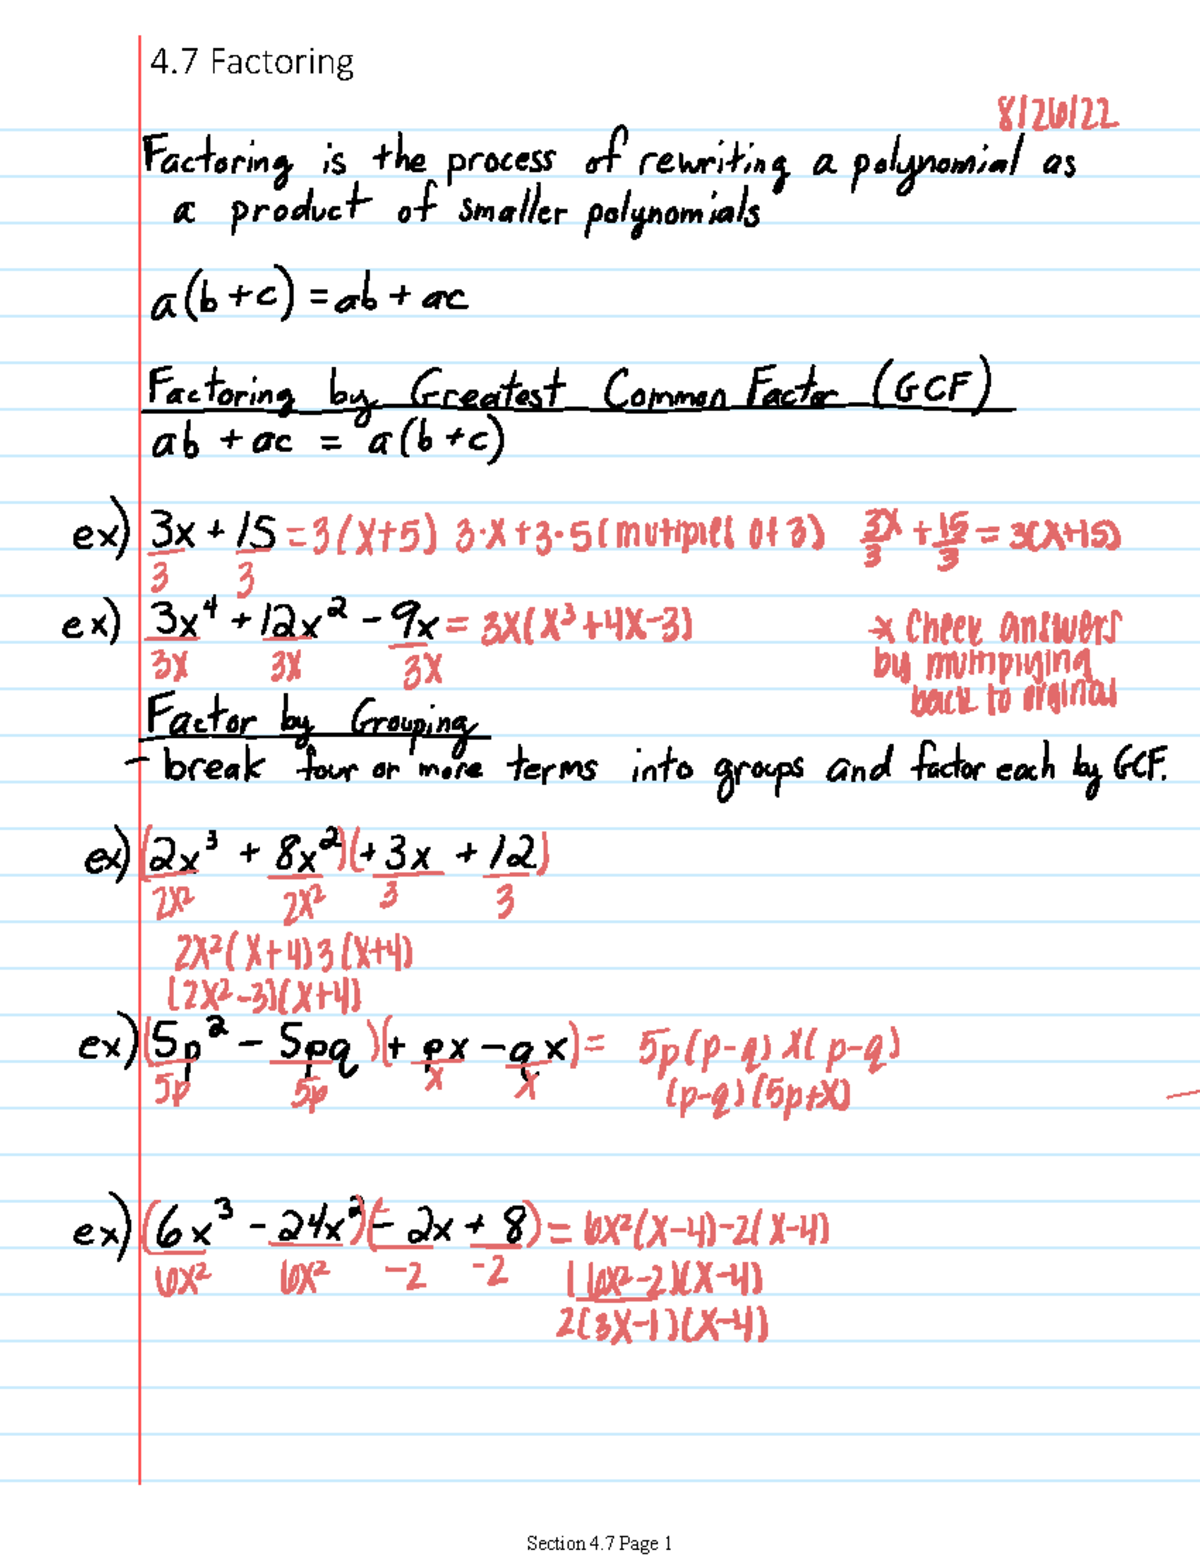 4.7 Factoring
8/26/22
Factoring is the process of rewriting a polynomial as
a product of smaller polynomials
a(b+c) = ab + ac
Factoring by Greatest Common Factor (GCF)
ab + ac = a(b+c)
ex) 3x + 15 = 3(x+5) 3·x+3·5 (multiples of 3) 3x/3 + 15/3 = 3(x+15)
3 3
ex) 3x⁴ + 12x² - 9x = 3x(x³+4x-3)
3x 3x 3x
* Check answers
by multiplying
back to orginal
Factor by Grouping
- break four or more terms into groups and factor each by GCF.
ex) (2x³ + 8x²)(+3x + 12)
2x² 2x² 3 3
2x²(x+4)3(x+4)
(2x²-3)(x+4)
ex) (5p² - 5pq)(+ px - qx) = 5p(p-q) x(p-q)
5p 5p x x
(p-q)(5p+x)
ex) (6x³ - 24x²)(- 2x + 8) = 6x²(x-4)-2(x-4)
6x² 6x² -2 -2
(6x²-2)(x-4)
2(3x-1)(x-4)
Section 4.7 Page 1